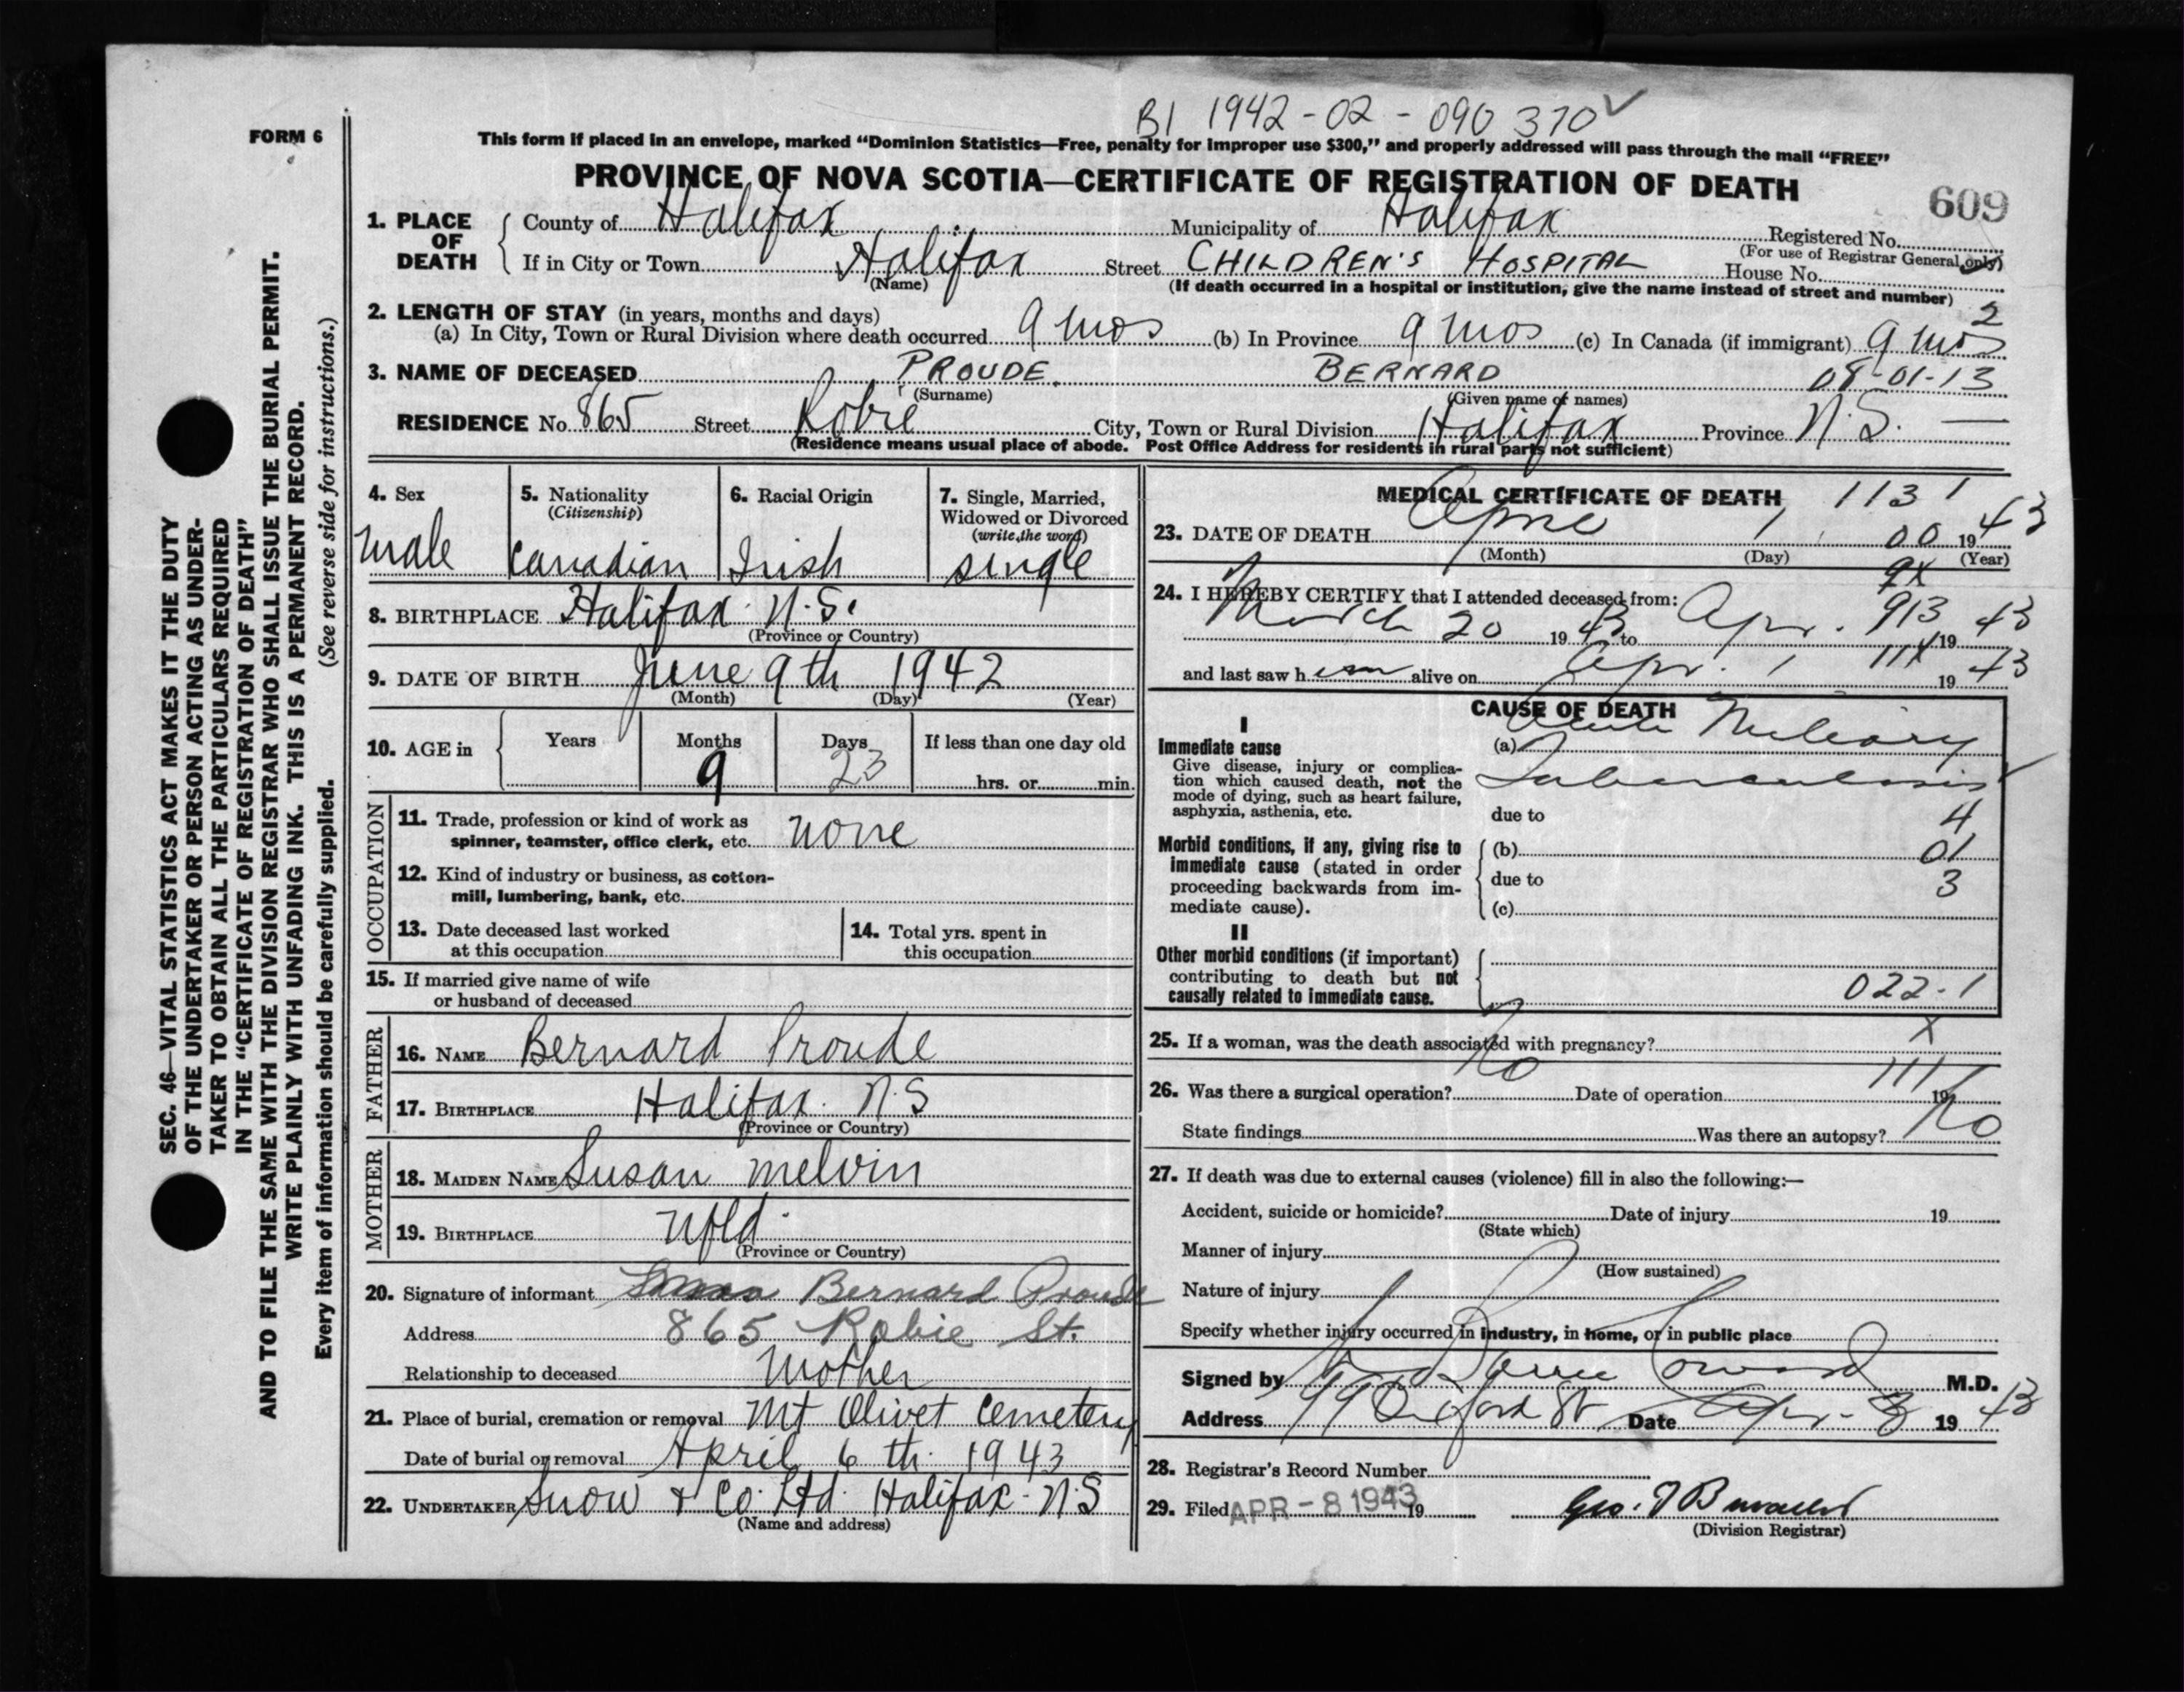 B1 1942-02-090370
FORM 6
This form if placed in an envelope, marked “Dominion Statistics—Free, penalty for improper use $300,” and properly addressed will pass through the mail “FREE”
PROVINCE OF NOVA SCOTIA—CERTIFICATE OF REGISTRATION OF DEATH
609
1. PLACE OF DEATH County of Halifax Municipality of Halifax Registered No.
(For use of Registrar General only)
If in City or Town Halifax Street CHILDREN'S HOSPITAL House No.
(Name) (If death occurred in a hospital or institution, give the name instead of street and number)
2. LENGTH OF STAY (in years, months and days) 2
(a) In City, Town or Rural Division where death occurred 9 mos (b) In Province 9 mos (c) In Canada (if immigrant) 9 mos
3. NAME OF DECEASED PROUDE, BERNARD 08-01-13
(Surname) (Given name or names)
RESIDENCE No. 865 Street Robie City, Town or Rural Division Halifax Province N.S. —
(Residence means usual place of abode. Post Office Address for residents in rural parts not sufficient)
4. Sex 5. Nationality 6. Racial Origin 7. Single, Married,
(Citizenship) Widowed or Divorced
(write the word)
male Canadian Irish single
8. BIRTHPLACE Halifax N.S.
(Province or Country)
9. DATE OF BIRTH June 9th 1942
(Month) (Day) (Year)
10. AGE in Years Months Days If less than one day old
9 23 hrs. or min.
OCCUPATION
11. Trade, profession or kind of work as
spinner, teamster, office clerk, etc. none
12. Kind of industry or business, as cotton-
mill, lumbering, bank, etc.
13. Date deceased last worked
at this occupation
14. Total yrs. spent in
this occupation
15. If married give name of wife
or husband of deceased
FATHER
16. NAME Bernard Proude
17. BIRTHPLACE Halifax N.S
(Province or Country)
MOTHER
18. MAIDEN NAME Susan Melvin
19. BIRTHPLACE Nfld.
(Province or Country)
20. Signature of informant Bernard Proude
Address 865 Robie St.
Relationship to deceased Mother
21. Place of burial, cremation or removal Mt Olivet Cemetery
Date of burial or removal April 6th 1943
22. UNDERTAKER Snow & Co. Ltd. Halifax. N.S
(Name and address)
MEDICAL CERTIFICATE OF DEATH 113 1
23. DATE OF DEATH April 1 00 1943
(Month) (Day) (Year)
9X
24. I HEREBY CERTIFY that I attended deceased from:
March 20 1943 to Apr. 913 1943
and last saw him alive on Apr. 1 11X 1943
CAUSE OF DEATH
I
Immediate cause
Give disease, injury or complica-
tion which caused death, not the
mode of dying, such as heart failure,
asphyxia, asthenia, etc.
(a) Acute Miliary
Tuberculosis
due to 4
Morbid conditions, if any, giving rise to
immediate cause (stated in order
proceeding backwards from im-
mediate cause).
(b) 01
due to 3
(c)
II
Other morbid conditions (if important)
contributing to death but not
causally related to immediate cause.
022-1
25. If a woman, was the death associated with pregnancy? X
26. Was there a surgical operation? No Date of operation 111 19
State findings Was there an autopsy? No
27. If death was due to external causes (violence) fill in also the following:—
Accident, suicide or homicide? Date of injury 19
(State which)
Manner of injury
(How sustained)
Nature of injury
Specify whether injury occurred in industry, in home, or in public place
Signed by M.D.
Address Oxford St Date Apr. 1943
28. Registrar's Record Number
29. Filed APR - 8 1943 19
(Division Registrar)
SEC. 46—VITAL STATISTICS ACT MAKES IT THE DUTY
OF THE UNDERTAKER OR PERSON ACTING AS UNDER-
TAKER TO OBTAIN ALL THE PARTICULARS REQUIRED
IN THE “CERTIFICATE OF REGISTRATION OF DEATH”
AND TO FILE THE SAME WITH THE DIVISION REGISTRAR WHO SHALL ISSUE THE BURIAL PERMIT.
WRITE PLAINLY WITH UNFADING INK. THIS IS A PERMANENT RECORD.
Every item of information should be carefully supplied. (See reverse side for instructions.)